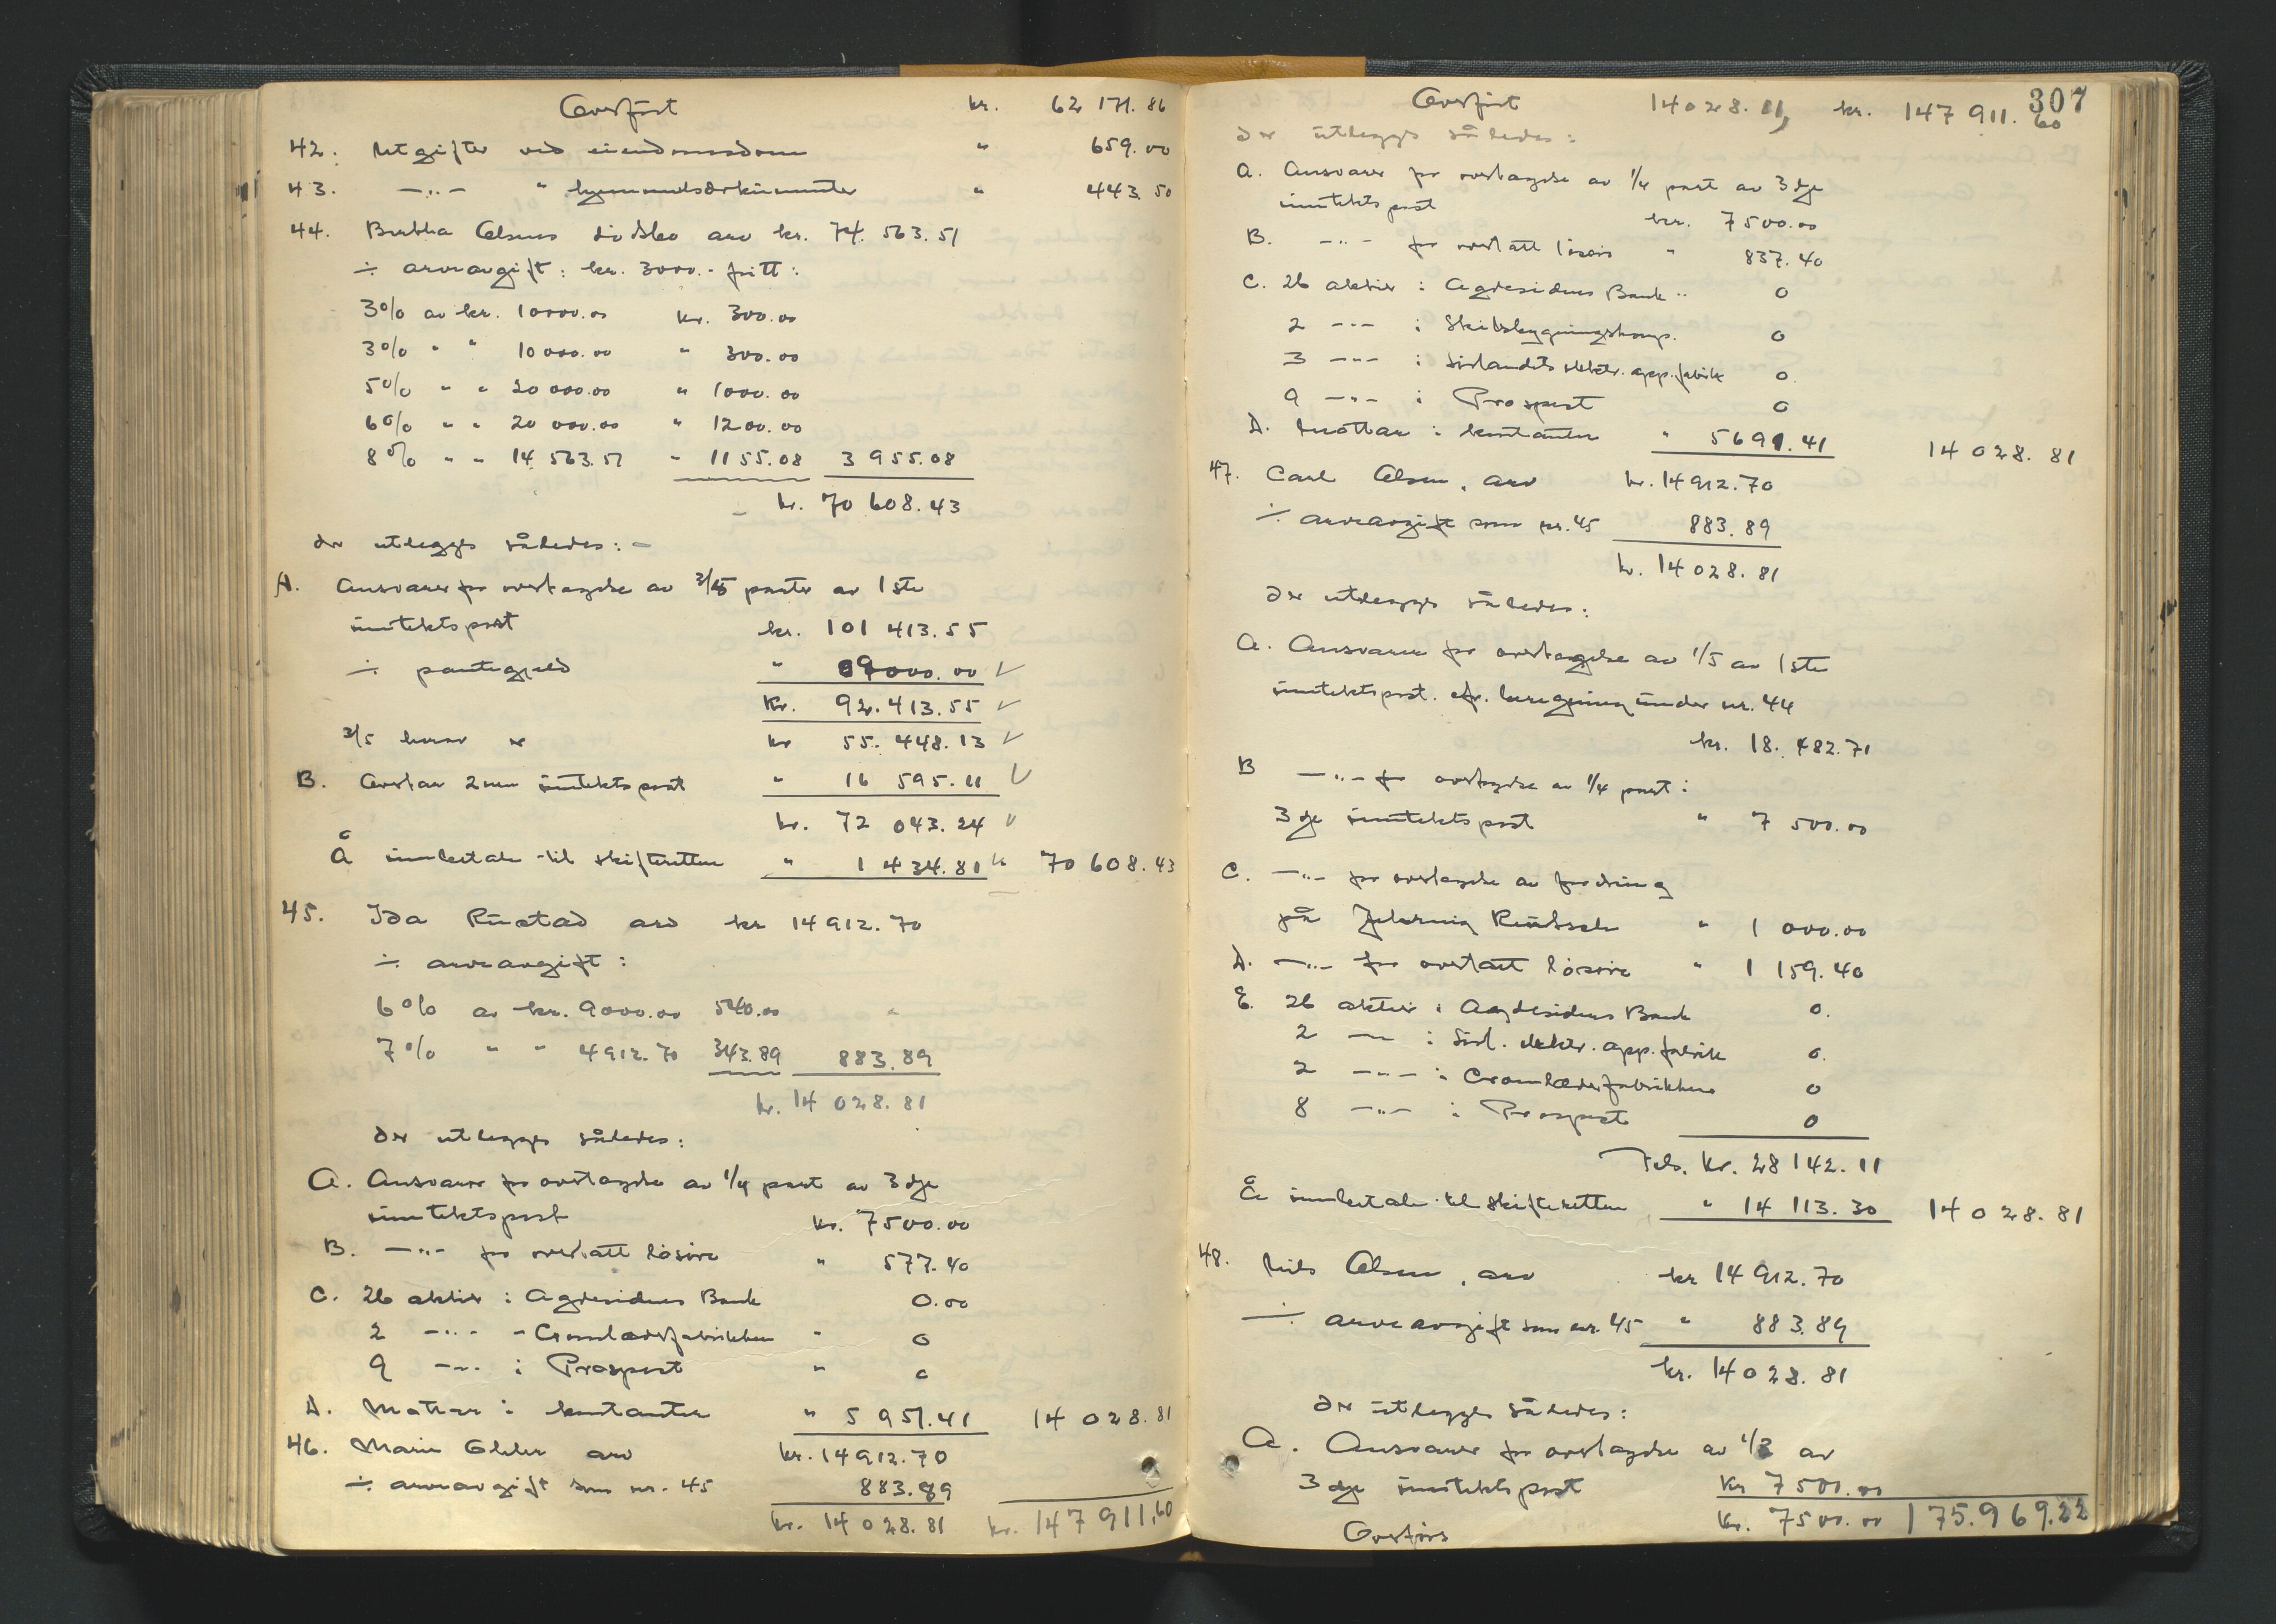 Overført kr. 62 171.86
42. Utgifter ved eiendomsdom " 659.00
43. —"— " hjemmelsdokumenter " 443.50
44. Olsens dødsbo arv kr. 74.563.51
÷ arveavgift: kr. 3000.- fritt:
3% av kr. 10000.00 kr. 300.00
3% " " 10000.00 " 300.00
5% " " 20 000.00 " 1000.00
6% " " 20 000.00 " 1200.00
8% " " 14 563.51 " 1155.08 3 955.08
kr. 70 608.43
der utlegges således: -
A. Ansvaret for overtagelse av 3/5 parter av 1ste
inntektspost kr. 101 413.55
÷ pantegjeld " 09000.00 V
Kr. 92.413.55 V
3/5 herav er kr 55.448.13 V
B. Overtar 2nen inntektspost " 16 595.11 V
kr. 72 043.24 V
Å innbetale til skifteretten " 1 434.81 V 70 608.43
45. Ida Rustad arv kr 14912.70
÷ arveavgift:
6% av kr. 9000.00 540.00
7% " " 4912.70 343.89 883.89
kr. 14 028.81
der utlegges således:
A. Ansvaret for overtagelse av 1/4 part av 3dje
inntektspost kr. 7500.00
B. —"— for overtatt løsøre " 577.40
C. 26 aktier i Agdesidens Bank 0.00
2 —"— - Cromlæderfabrikken " 0
9 —"— i Prospect " 0
D. Mottar i kontanter " 5 951.41 14 028.81
46. Marie arv kr. 14912.70
÷ arveavgift som nr. 45 883.89
kr. 14 028.81 kr. 147 911.60
307
Overført 14028.81, kr. 147 911.60
der utlegges således:
A. Ansvaret for overtagelse av 1/4 part av 3dje
inntektspost kr. 7500.00
B. —"— for overtatt løsøre " 837.40
C. 26 aktier i Agdesidens Bank " 0
2 —"— i Skibsbygningskomp. 0
3 —"— i Sørlandets elektr. app. fabrik 0.
9 —"— i Prospect 0
D. Mottar i kontanter " 5691.41 14 028.81
47. Carl Olsen, arv kr. 14912.70
÷ arveavgift som nr. 45 883.89
kr. 14 028.81
der utlegges således:
A. Ansvaret for overtagelse av 1/5 av 1ste
inntektspost. cfr. beregning under nr. 44
kr. 18.482.71
B —"— for overtagelse av 1/4 part i
3dje inntektspost " 7 500.00
C. —"— for overtagelse av fordring
på " 1 000.00
D. —"— for overtatt løsøre " 1 159.40
E. 26 aktier i Agdesidens Bank 0.
2 —"— i Sørl. elektr. app. fabrik 0.
2 —"— i Cromlæderfabrikken 0
8 —"— i Prospect 0
Tils. kr. 28 142.11
Å innbetale til skifteretten " 14 113.30 14 028.81
48. Nils Olsen, arv kr 14912.70
÷ arveavgift som nr. 45 " 883.89
kr. 14 028.81
der utlegges således:
A. Ansvaret for overtagelse av av
3dje inntektspost kr 7500.00
Overføres kr. 7500.00 175.969.22